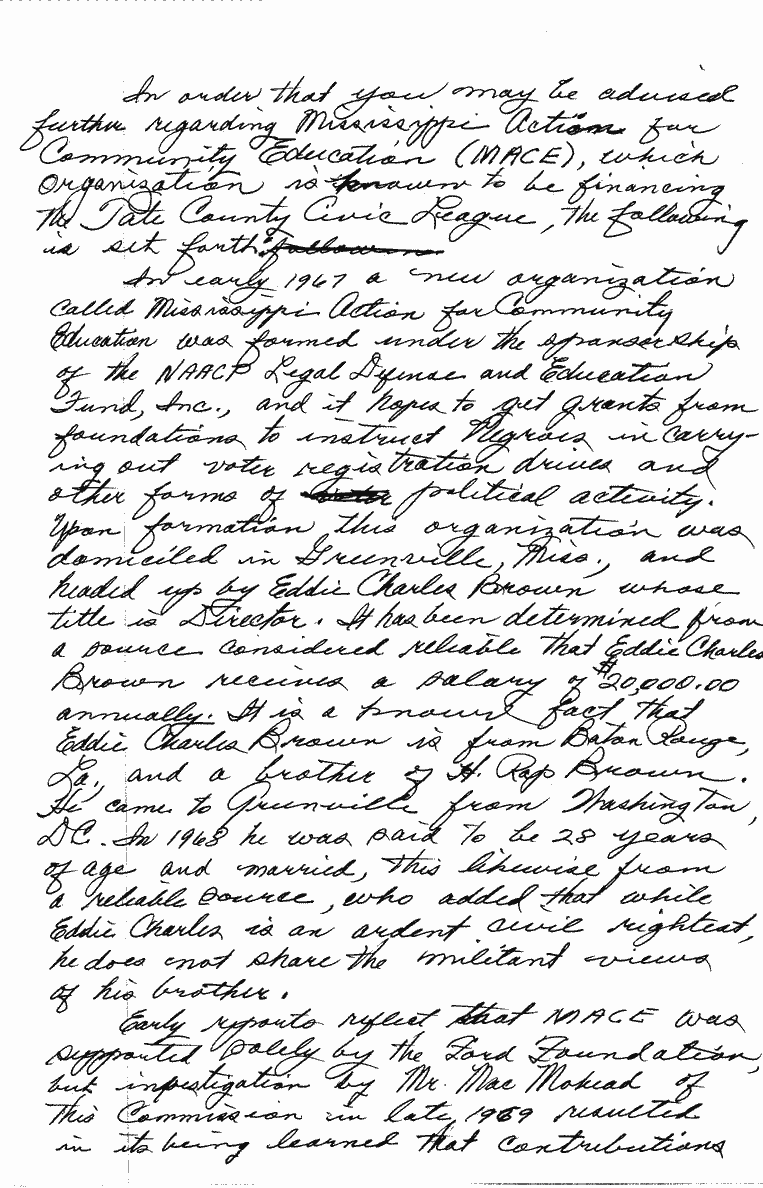 In order that you may be advised
further regarding Mississippi Action for
Community Education (MACE), which
organization is known to be financing
the Tate County Civic League, the following
is set forth:
In early 1967 a new organization
called Mississippi Action for Community
Education was formed under the sponsorship
of the NAACP Legal Defense and Education
Fund, Inc., and it hopes to get grants from
foundations to instruct Negroes in carry-
ing out voter registration drives and
other forms of political activity.
Upon formation this organization was
domiciled in Greenville, Miss., and
headed up by Eddie Charles Brown whose
title is Director. It has been determined from
a source considered reliable that Eddie Charles
Brown receives a salary of $20,000.00
annually. It is a known fact that
Eddie Charles Brown is from Baton Rouge,
La., and a brother of H. Rap Brown.
He came to Greenville from Washington,
DC. In 1968 he was said to be 28 years
of age and married, this likewise from
a reliable source, who added that while
Eddie Charles is an ardent civil rightest,
he does not share the militant views
of his brother.
Early reports reflect that MACE was
supported solely by the Ford Foundation,
but investigation by Mr. Mac Mohead of
this Commission in late 1969 resulted
in its being learned that contributions